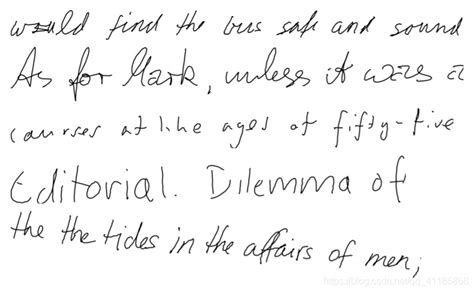 would find the bus safe and sound
As for Mark, unless it was a
courses at the ages of fifty-five
Editorial. Dilemma of
the the tides in the affairs of men;